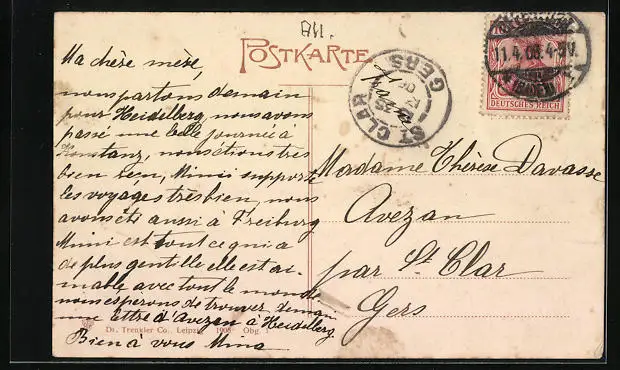 All.
POSTKARTE
Ma chère mère,
nous partons demain
pour Heidelberg, nous avons
passé une belle journée à
Konstanz, nous étions très
bien bén, Mimi supporte
les voyages très bien, nous
avons été aussi à Freiburg
Mimi est tout ce qui a
de plus gentille elle est ai-
mable avec tout le monde
nous esperons de trouver deman
une lettre d'Avezan à Heidelberg.
Bien à vous Mina
Dr. Trenkler Co., Leipzig 1906 Obg. 1
ST CLAR
GERS
11.4.06.4-5V.
(BADEN)
DEUTSCHES REICH
Madame Thérèse Davasse
Avezan
par St. Clar
Gers